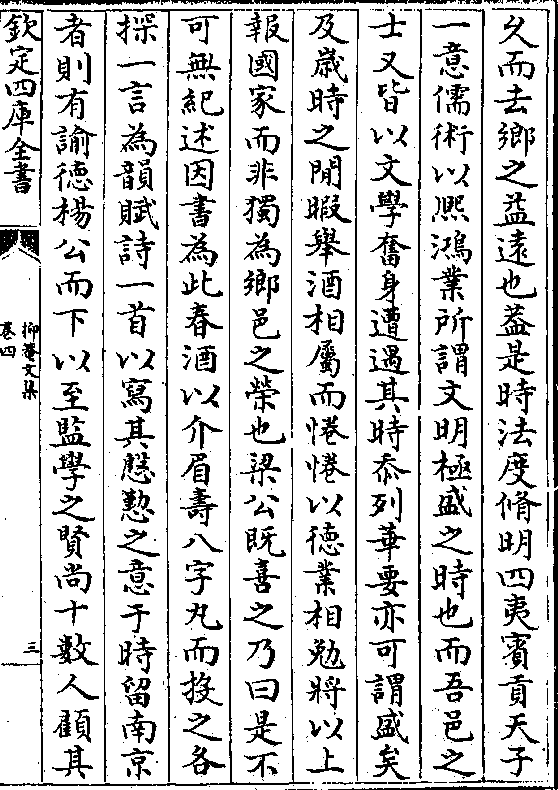 乆而去鄉之益遠也葢是時法度脩明四夷賓貢天子
一意儒術以熈鴻業所謂文明極盛之時也而吾邑之
士又皆以文學奮身遭遇其時忝列華要亦可謂盛矣
及嵗時之閒暇舉酒相屬而惓惓以徳業相勉將以上
報國家而非獨為鄉邑之榮也梁公既喜之乃曰是不
可無紀述因書為此春酒以介眉壽八字丸而投之各
探一言為韻賦詩一首以寫其慇懃之意于時留南京
者則有諭徳楊公而下以至監學之賢尚十數人顧其
欽定四庫全書
抑菴文集
卷四
三